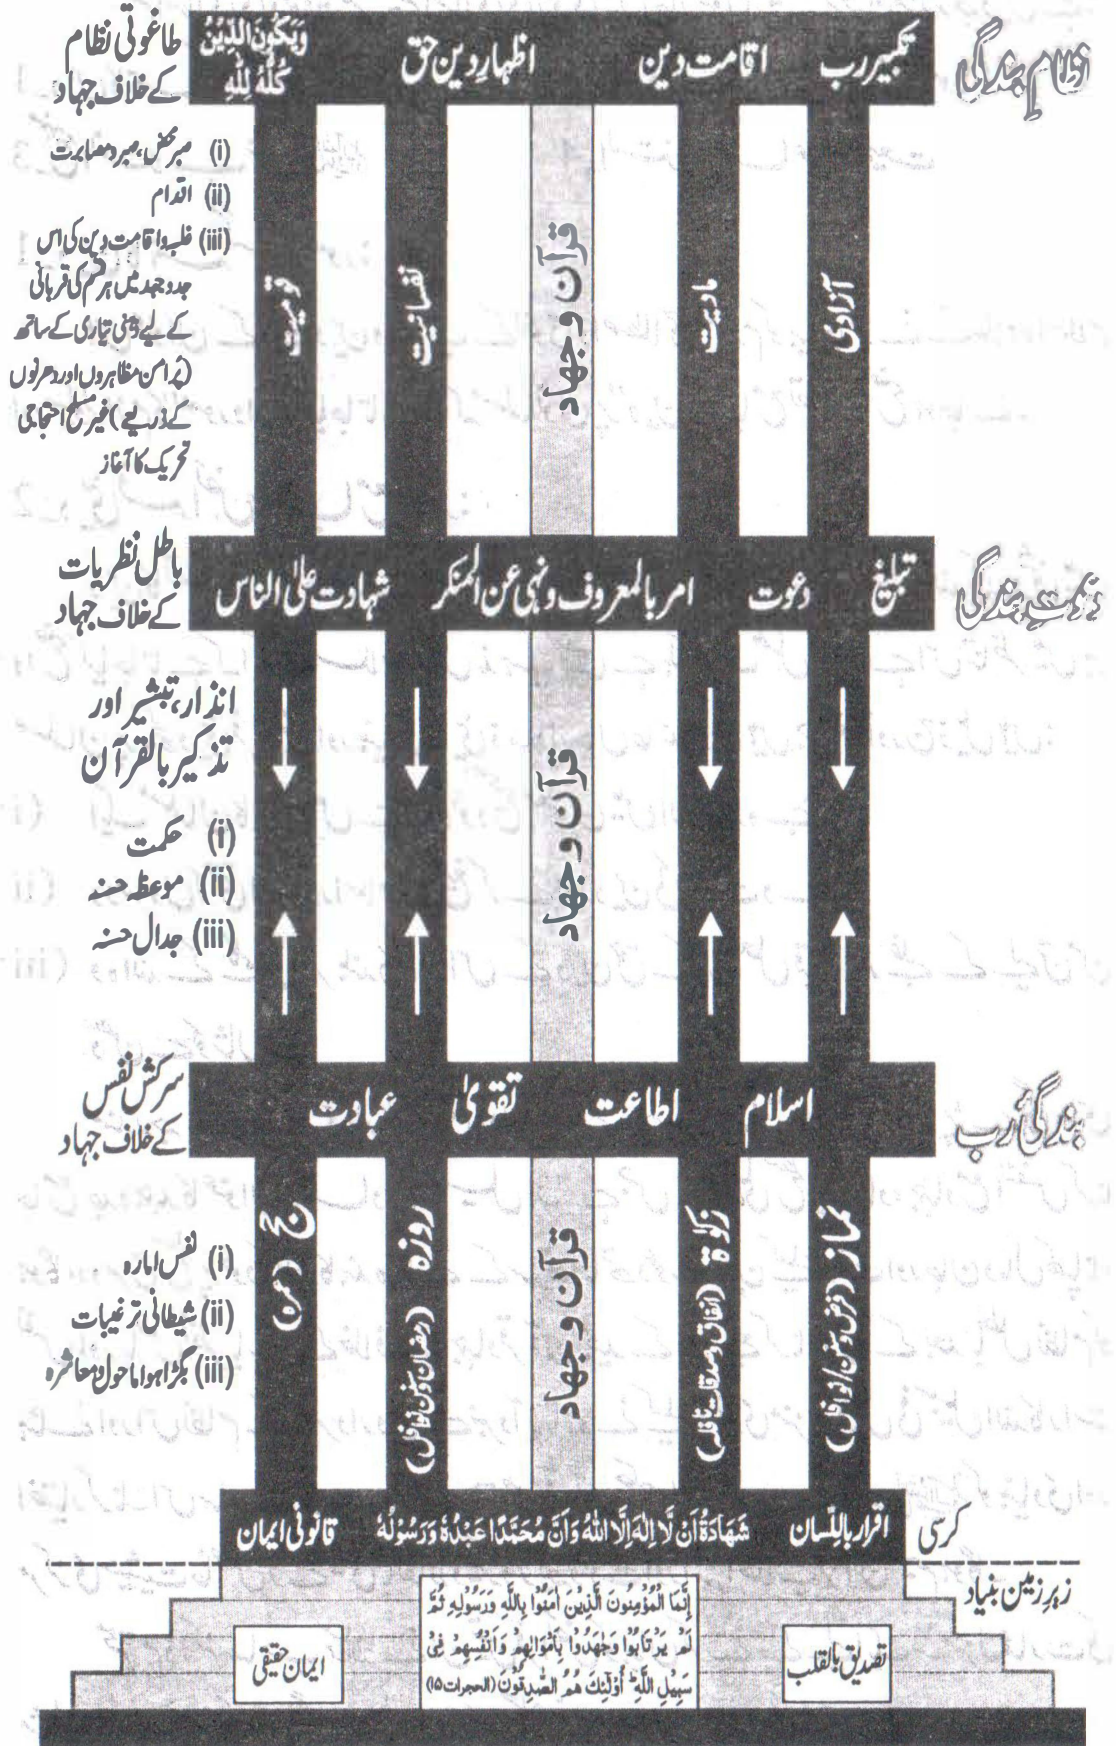 نظامِ بندگی
تکبیر رب اقامت دین اظہارِ دین حق وَيَكُونَ الدِّيْنُ كُلُّهُ لِلّٰهِ
طاغوتی نظام
کے خلاف جہاد
(i) صبر محض، صبر و مصابرت
(ii) اقدام
(iii) غلبہ و اقامت دین کی اس
جدوجہد میں ہر قسم کی قربانی
کے لیے ذہنی تیاری کے ساتھ
(پُر امن مظاہروں اور دھرنوں
کے ذریعے) غیر مسلح احتجاجی
تحریک کا آغاز
آزادی
مادیت
قرآن و جهاد
نفسانیت
قومیت
دعوتِ بندگی
تبلیغ دعوت امر بالمعروف و نہی عن المنکر شہادت علی الناس
باطل نظریات
کے خلاف جہاد
انذار، تبشیر اور
تذکیر بالقرآن
(i) حکمت
(ii) موعظہ حسنہ
(iii) جدال حسنہ
قرآن و جهاد
بندگیٔ رب
اسلام اطاعت تقویٰ عبادت
سرکش نفس
کے خلاف جہاد
(i) نفس امارہ
(ii) شیطانی ترغیبات
(iii) بگڑا ہوا ماحول و معاشرہ
نماز (فرض و سنن/نوافل)
زکوٰۃ (انفاق و صدقات نافلہ)
قرآن و جهاد
روزہ (رمضان و سنن نوافل)
حج (عمرہ)
کرسی
اقرار باللّسان شَهَادَةُ اَنْ لَّا اِلٰهَ اِلَّا اللّٰهُ وَاَنَّ مُحَمَّدًا عَبْدُهٗ وَرَسُوْلُهٗ قانونی ایمان
زیرِ زمین بنیاد
تصدیق بالقلب
اِنَّمَا الْمُؤْمِنُونَ الَّذِيْنَ اٰمَنُوْا بِاللّٰهِ وَرَسُوْلِهٖ ثُمَّ
لَمْ يَرْتَابُوْا وَجٰهَدُوْا بِاَمْوَالِهِمْ وَاَنْفُسِهِمْ فِيْ
سَبِيْلِ اللّٰهِ ؕ اُولٰٓئِكَ هُمُ الصّٰدِقُوْنَ (الحجرات ۱۵)
ایمان حقیقی